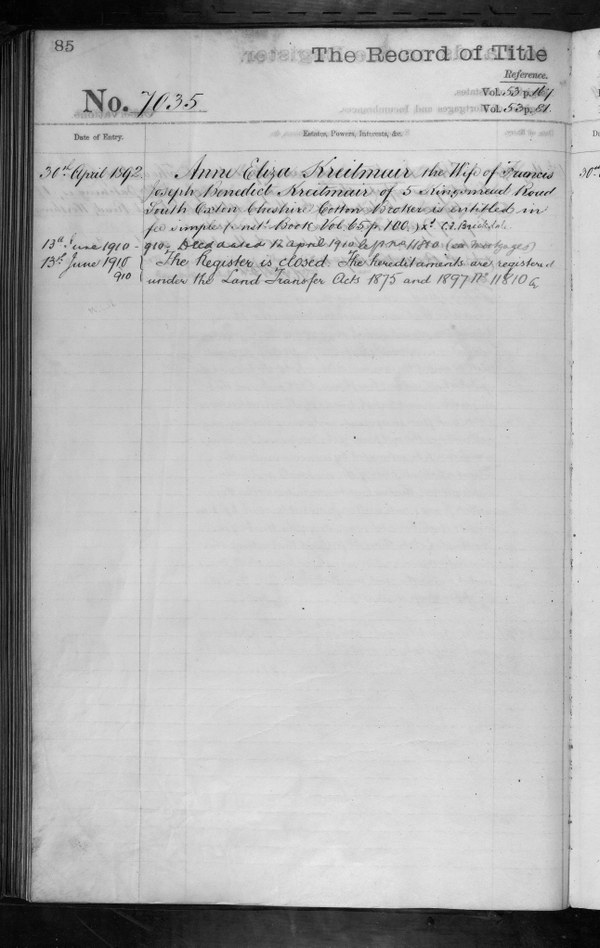 85
The Record of Title
Reference.
No. 7035
Vol. 53 p. 167
Vol. 53 p. 81
Date of Entry.
Estates, Powers, Interests, &c.
30th April 1892 Anne Eliza Kreitmair the Wife of Francis
Joseph Benedict Kreitmair of 5 Kingsmead Road
South Oxton Cheshire Cotton Broker is entitled in
fee simple Book Vol 65 p. 100.
13th June 1910 - 910 - Deed dated 12 April 1910 (see mortgages)
13th June 1910 The Register is closed. The hereditaments are registered
910 under the Land Transfer Acts 1875 and 1897 No. 11810